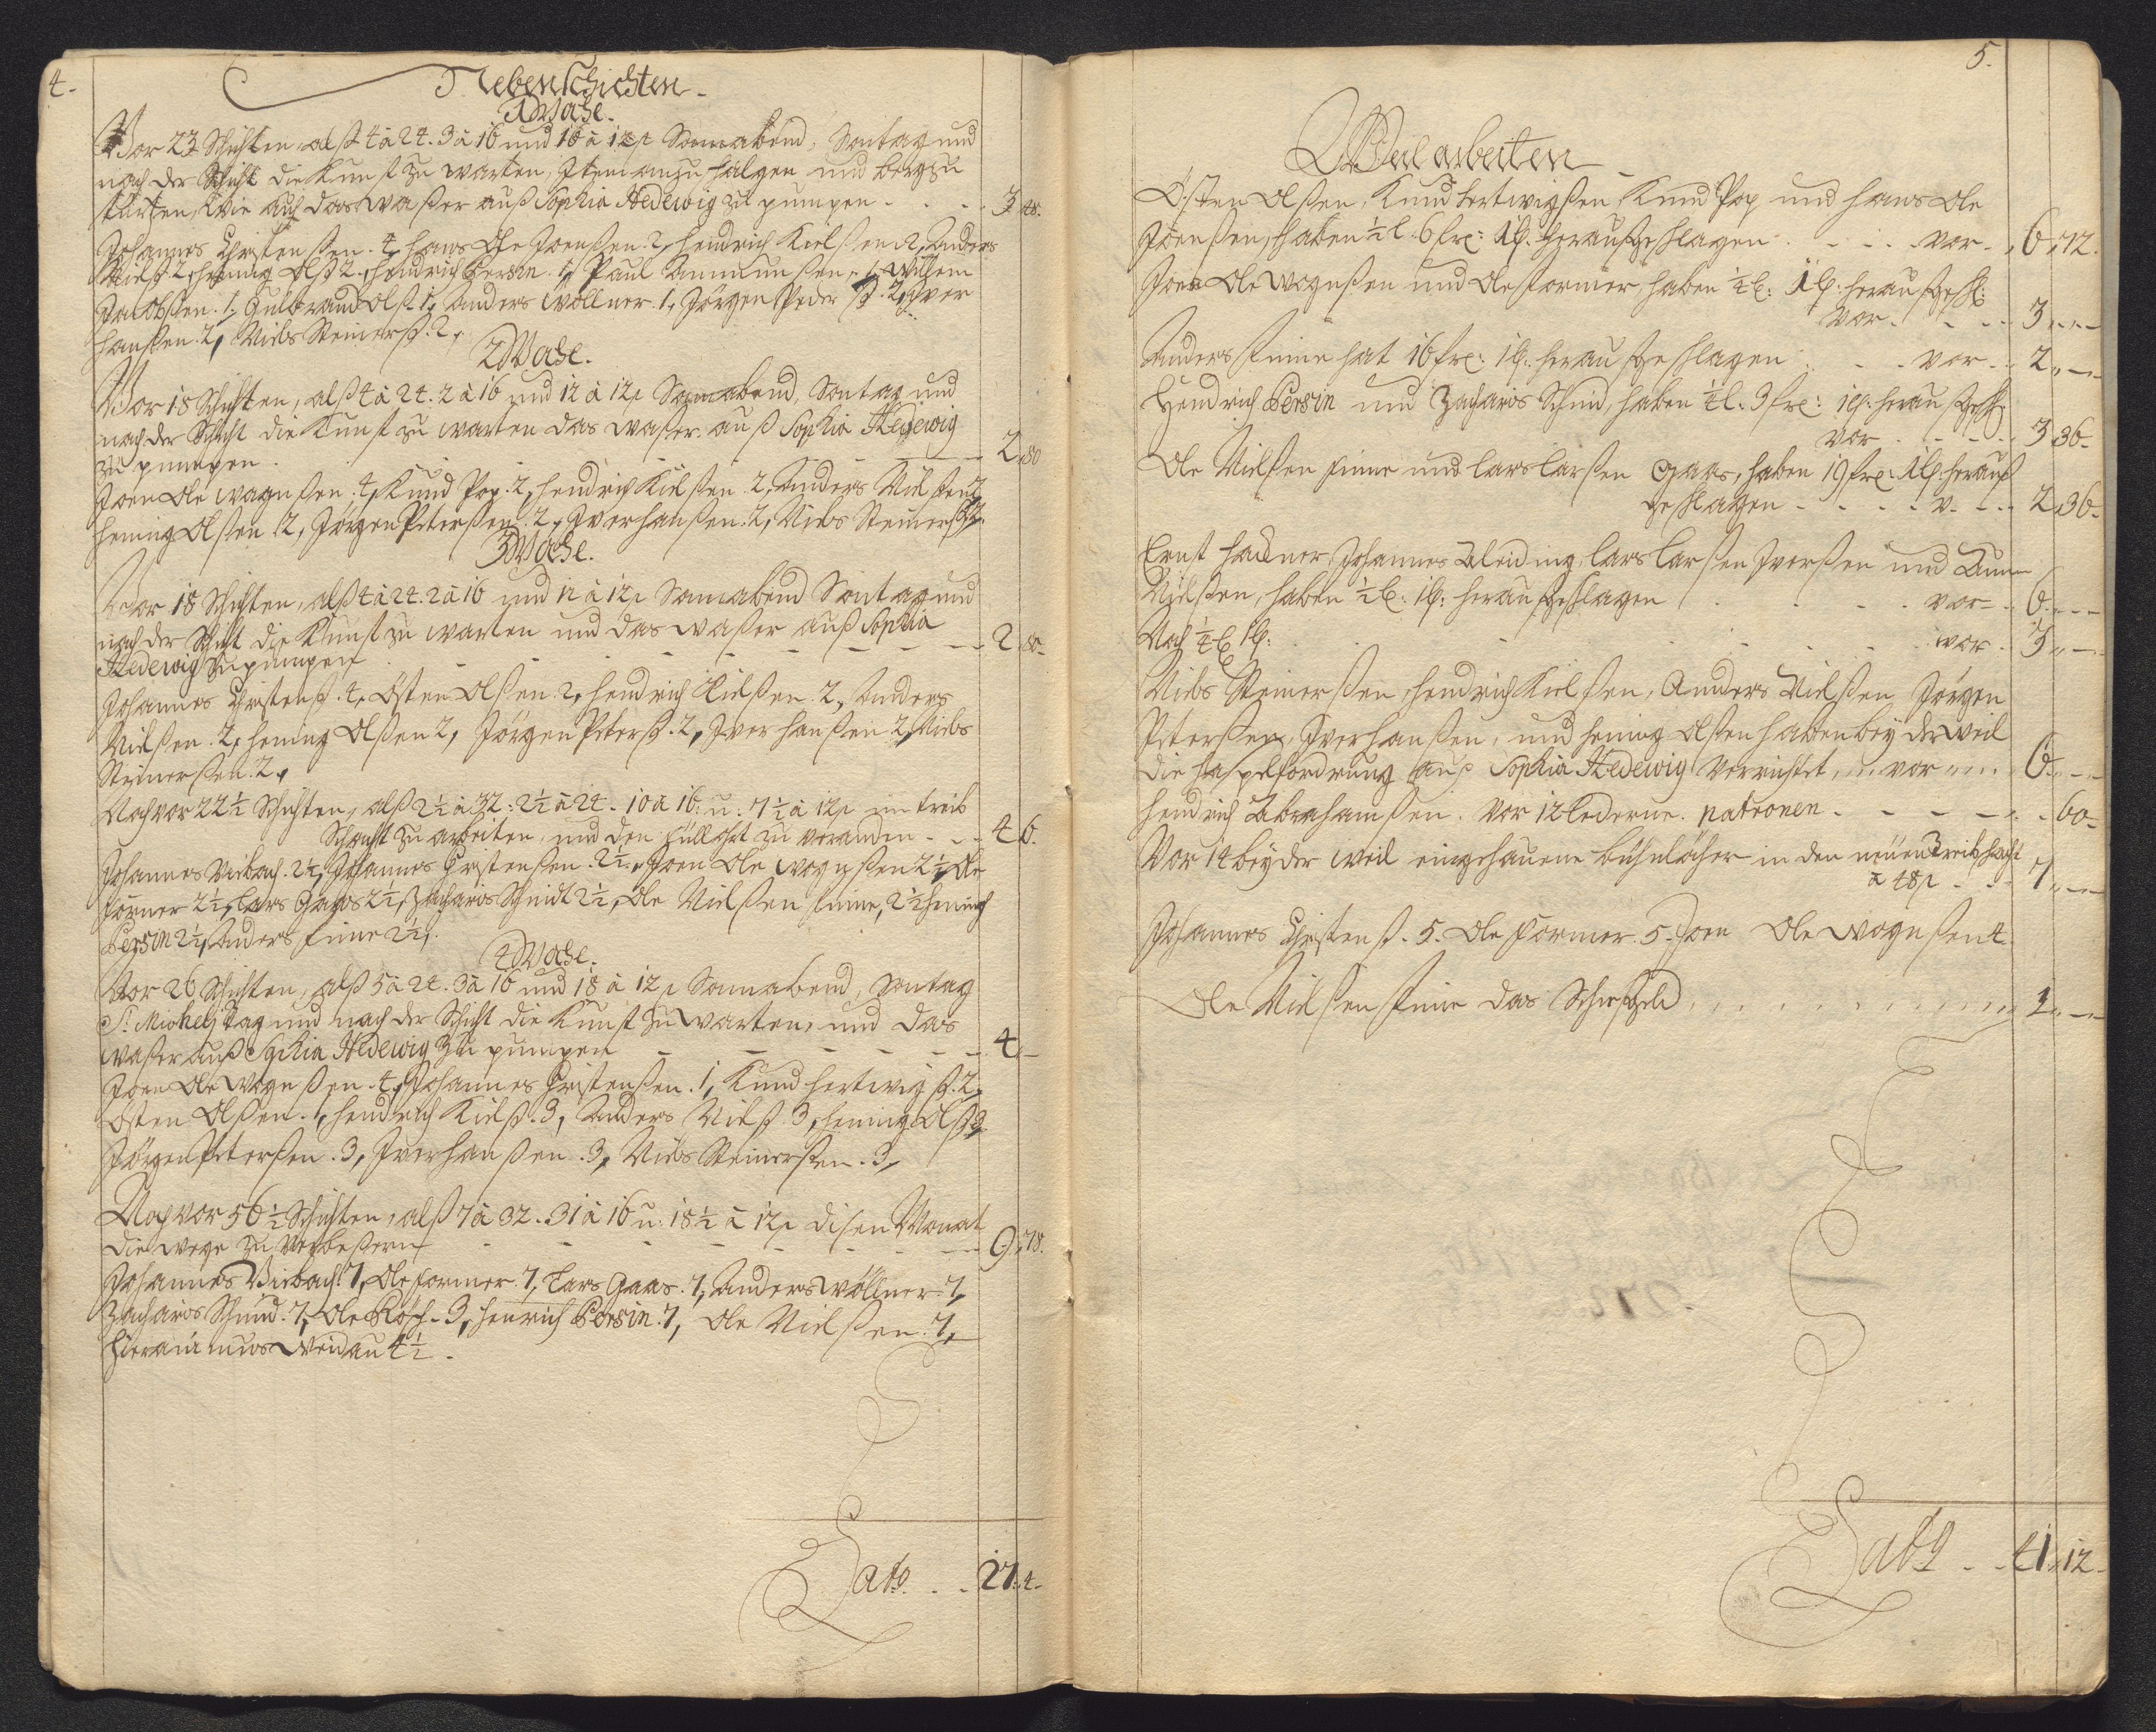 4.
Nebenschichten.
1 Woche.
Vor 23 Schichten, alß 4 à 24. 3 à 16 und 16 à 12 ß Sonnabend, Sontag und
nach der Schicht die Kunst zu warten, Item anzuhälgen und bergzu
stürtzen, Wie auch das waßer auß Sophia Hedewig zu pumpen - - - 3 48.
Johannes Christenßen. 4, hans Ole Joenßen. 2, hendrich Kielßen 2, Anders
Nielß 2, hening Olß 2, hendrich Persin. 1, Paul Ammunßen. 1, Willem
Jacobßen. 1, Gulbrand Olß. 1, Anders Wöllner. 1, Jörgen Peder ß. 2, Iver
hanßen. 2, Niels Steinerß. 2,
2 Woche.
Vor 18 Schichten, alß 4 à 24. 2 à 16 und 12 à 12 ß Sonnabend, Sontag und
nach der Schicht die Kunst zu warten das waßer auß Sophia Hedewig
zu pumpen. - - - 2 80
Joen Ole wagnßen. 4, Knud Pop. 2, hendrich Kielßen. 2, Anders Nielßen 2,
hening Olßen 2, Jörgen Peterßen. 2, Iver hanßen. 2, Niels Steinerß 2.
3 Woche.
Vor 18 Schichten, alß 4 à 24. 2 à 16 und 12 à 12 ß Sonnabend Sontag und
nach der Schicht die Kunst zu warten und das waßer auß Sophia
Hedewig zu pumpen - - - 2 80
Johannes Christenß. 4, Östen Olßen. 2, hendrich Kielßen. 2, Anders
Nielßen. 2, hening Olßen 2, Jörgen Peterß. 2, Iver hanßen 2, Niels
Steinerßen. 2,
Noch vor 22 ½ Schichten, alß 2 ½ à 32: 2 ½ à 24. 10 à 16: u: 7 ½ à 12 ß im treib
Schacht zu arbeiten, und den füllohrt zu verändern - - - 4 6.
Johannes Viebach. 2 ½, Johannes Christenßen. 2 ½, Joen Ole wognßen 2 ½, Ole
former 2 ½, Lars Gaas 2 ½, Zacharias Schmidt 2 ½, Ole Nielßen finne, 2 ½ henrich
Persin 2 ½, Anders finne 2 ½,
4 Woche.
Vor 26 Schichten, alß 5 à 24. 3 à 16 und 18 à 12 ß Sonnabend, Sontag
St. Michelj Tag und nach der Schicht die Kunst zu warten, und das
waßer auß Sophia Hedewig zu pumpen - - - 4 -
Joen Ole wognßen. 4, Johannes Christenßen. 1, Knud hertwigß. 2,
Östen Olßen. 1, hendrich Kielß. 3, Anders Nielß 3, hening Olß 3,
Jörgen Peterßen. 3, Iver hanßen. 3, Niels Steinerßen. 3,
Noch vor 56 ½ Schichten, alß 7 à 32. 31 à 16 u: 18 ½ à 12 ß disen Monat
die wege zu verbeßern - - - 9 78.
Johannes Viebach. 7, Ole former. 7, Lars Gaas. 7, Anders Wöllner 7,
Zacharias Schmid. 7, Ole Röst. 3, henrich Persin. 7, Ole Nielßen. 7,
Hieronimus Weidau 4 ½.
Lato. - - 27 4.
5.
Weil arbeiten
Östen Olßen, Knud hertwigßen, Knud Pop und hans Ole
Joenßen, haben ½ l. 6 fr: 1 lß: heraußgeschlagen - - vor - 6 72.
Joen Ole wognßen und Ole former, haben ¼ l: 1 lß: heraußgeschl:
vor - - - 3 - -
Anders finne hat 16 fr: 1 lß. heraußgeschlagen - - vor - 2 -
Hendrich Persin und Zacharias Schmid, haben ¼ l: 3 fr: 1 lß: heraußgeschl
vor - - - 3 36.
Ole Nielßen finne und Lars Larßen Gaas, haben 19 fr: 1 lß. herauß
geschlagen - - - v. - - 2 36.
Ernst hackner, Johannes Kleiding, Lars Larßen Iverßen und Amun
Nielßen, haben ½ l: 1 lß: heraußgeschlagen - - vor - - 6 - -
Noch ¼ l 1 lß: - - - vor - 3 -
Niels Steinerßen, hendrich Kielßen, Anders Nielßen Jörgen
Peterßen, Iver hanßen, und hening Olßen haben bey der weil
die haspelfordrung auß Sophia Hedewig verrichtet, - - vor - - 6 - -
hendrich Abrahamßen. vor 12 lederne. patronen. - - - 60 -
Vor 14 bey der weil eingehauene bühnlöcher in den neüen Treibschacht
à 48 ß - - 7 -
Johannes Christenß. 5. Ole former. 5. Joen Ole wognßen 4.
Ole Nielßen finne das Schießgeld - - - 1 -
Lato - - 41 12.